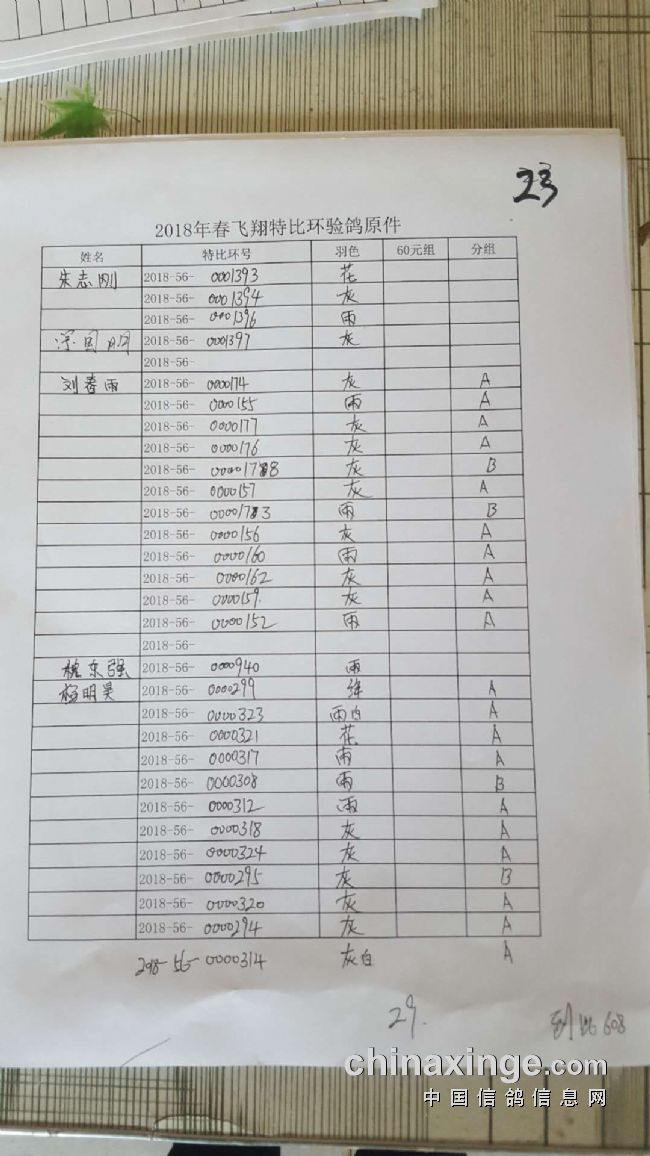 23
2018年春飞翔特比环验鸽原件
姓名 特比环号 羽色 60元组 分组
朱志刚 2018-56- 0001393 花
2018-56- 0001394 灰
2018-56- 0001396 雨
国明 2018-56- 0001397 灰
2018-56-
刘春雨 2018-56- 0000174 灰 A
2018-56- 0000155 雨 A
2018-56- 0000177 灰 A
2018-56- 0000176 灰 A
2018-56- 000017 8 灰 B
2018-56- 0000157 灰 A
2018-56- 000017 3 雨 B
2018-56- 0000156 灰 A
2018-56- 0000160 雨 A
2018-56- 0000162 灰 A
2018-56- 0000159 灰 A
2018-56- 0000152 雨 A
2018-56-
东强 2018-56- 0000940 雨
杨明昊 2018-56- 0000299 绛 A
2018-56- 0000323 雨白 A
2018-56- 0000321 花 A
2018-56- 0000317 雨 A
2018-56- 0000308 雨 B
2018-56- 0000312 雨 A
2018-56- 0000318 灰 A
2018-56- 0000324 灰 A
2018-56- 0000295 灰 B
2018-56- 0000320 灰 A
2018-56- 0000294 灰 A
2018-56-0000314 灰白 A
29. 到此608
chinaxinge.com
中国信鸽信息网